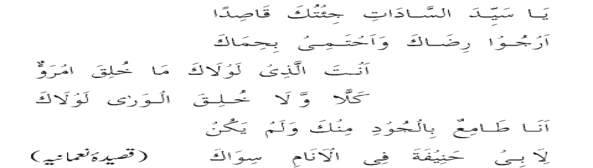 یَا سَیِّدَ السَّادَاتِ جِئْتُكَ قَاصِدًا
اَرْجُوْا رِضَاكَ وَاَحْتَمِیْ بِحِمَاكَ
اَنْتَ الَّذِیْ لَوْلَاكَ مَا خُلِقَ امْرَؤٌ
كَلَّا وَّ لَا خُلِقَ الْوَرٰی لَوْلَاكَ
اَنَا طَامِعٌ بِالْجُوْدِ مِنْكَ وَلَمْ یَكُنْ
لِاَبِیْ حَنِیْفَةَ فِی الْاَنَامِ سِوَاكَ (قصیدۂ نعمانیہ)